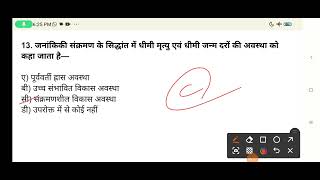 6:25 PM
13. जनांकिकी संक्रमण के सिद्धांत में धीमी मृत्यु एवं धीमी जन्म दरों की अवस्था को
कहा जाता है—
ए) पूर्ववर्ती ह्रास अवस्था
बी) उच्च संभावित विकास अवस्था
सी) संक्रमणशील विकास अवस्था
डी) उपरोक्त में से कोई नहीं
C